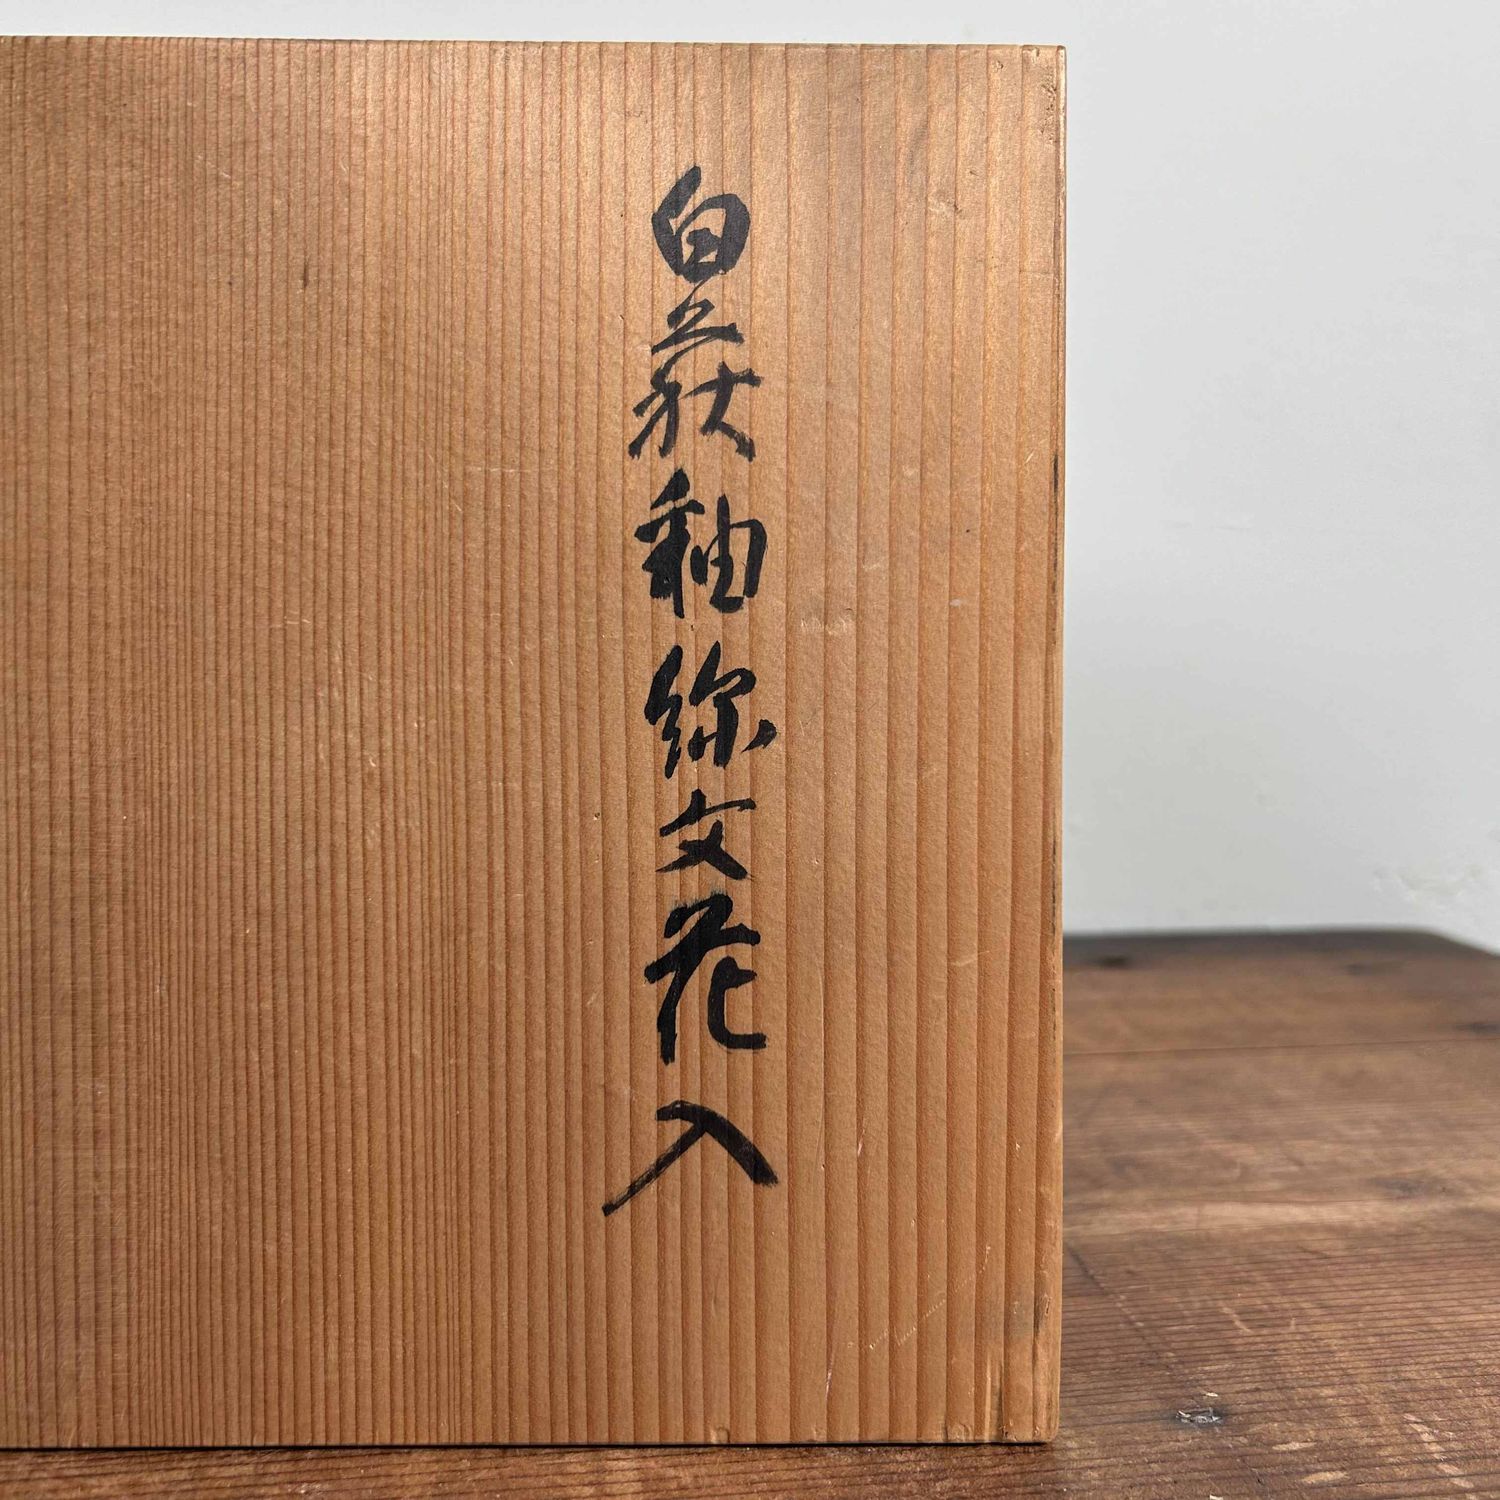 白萩釉線文花入